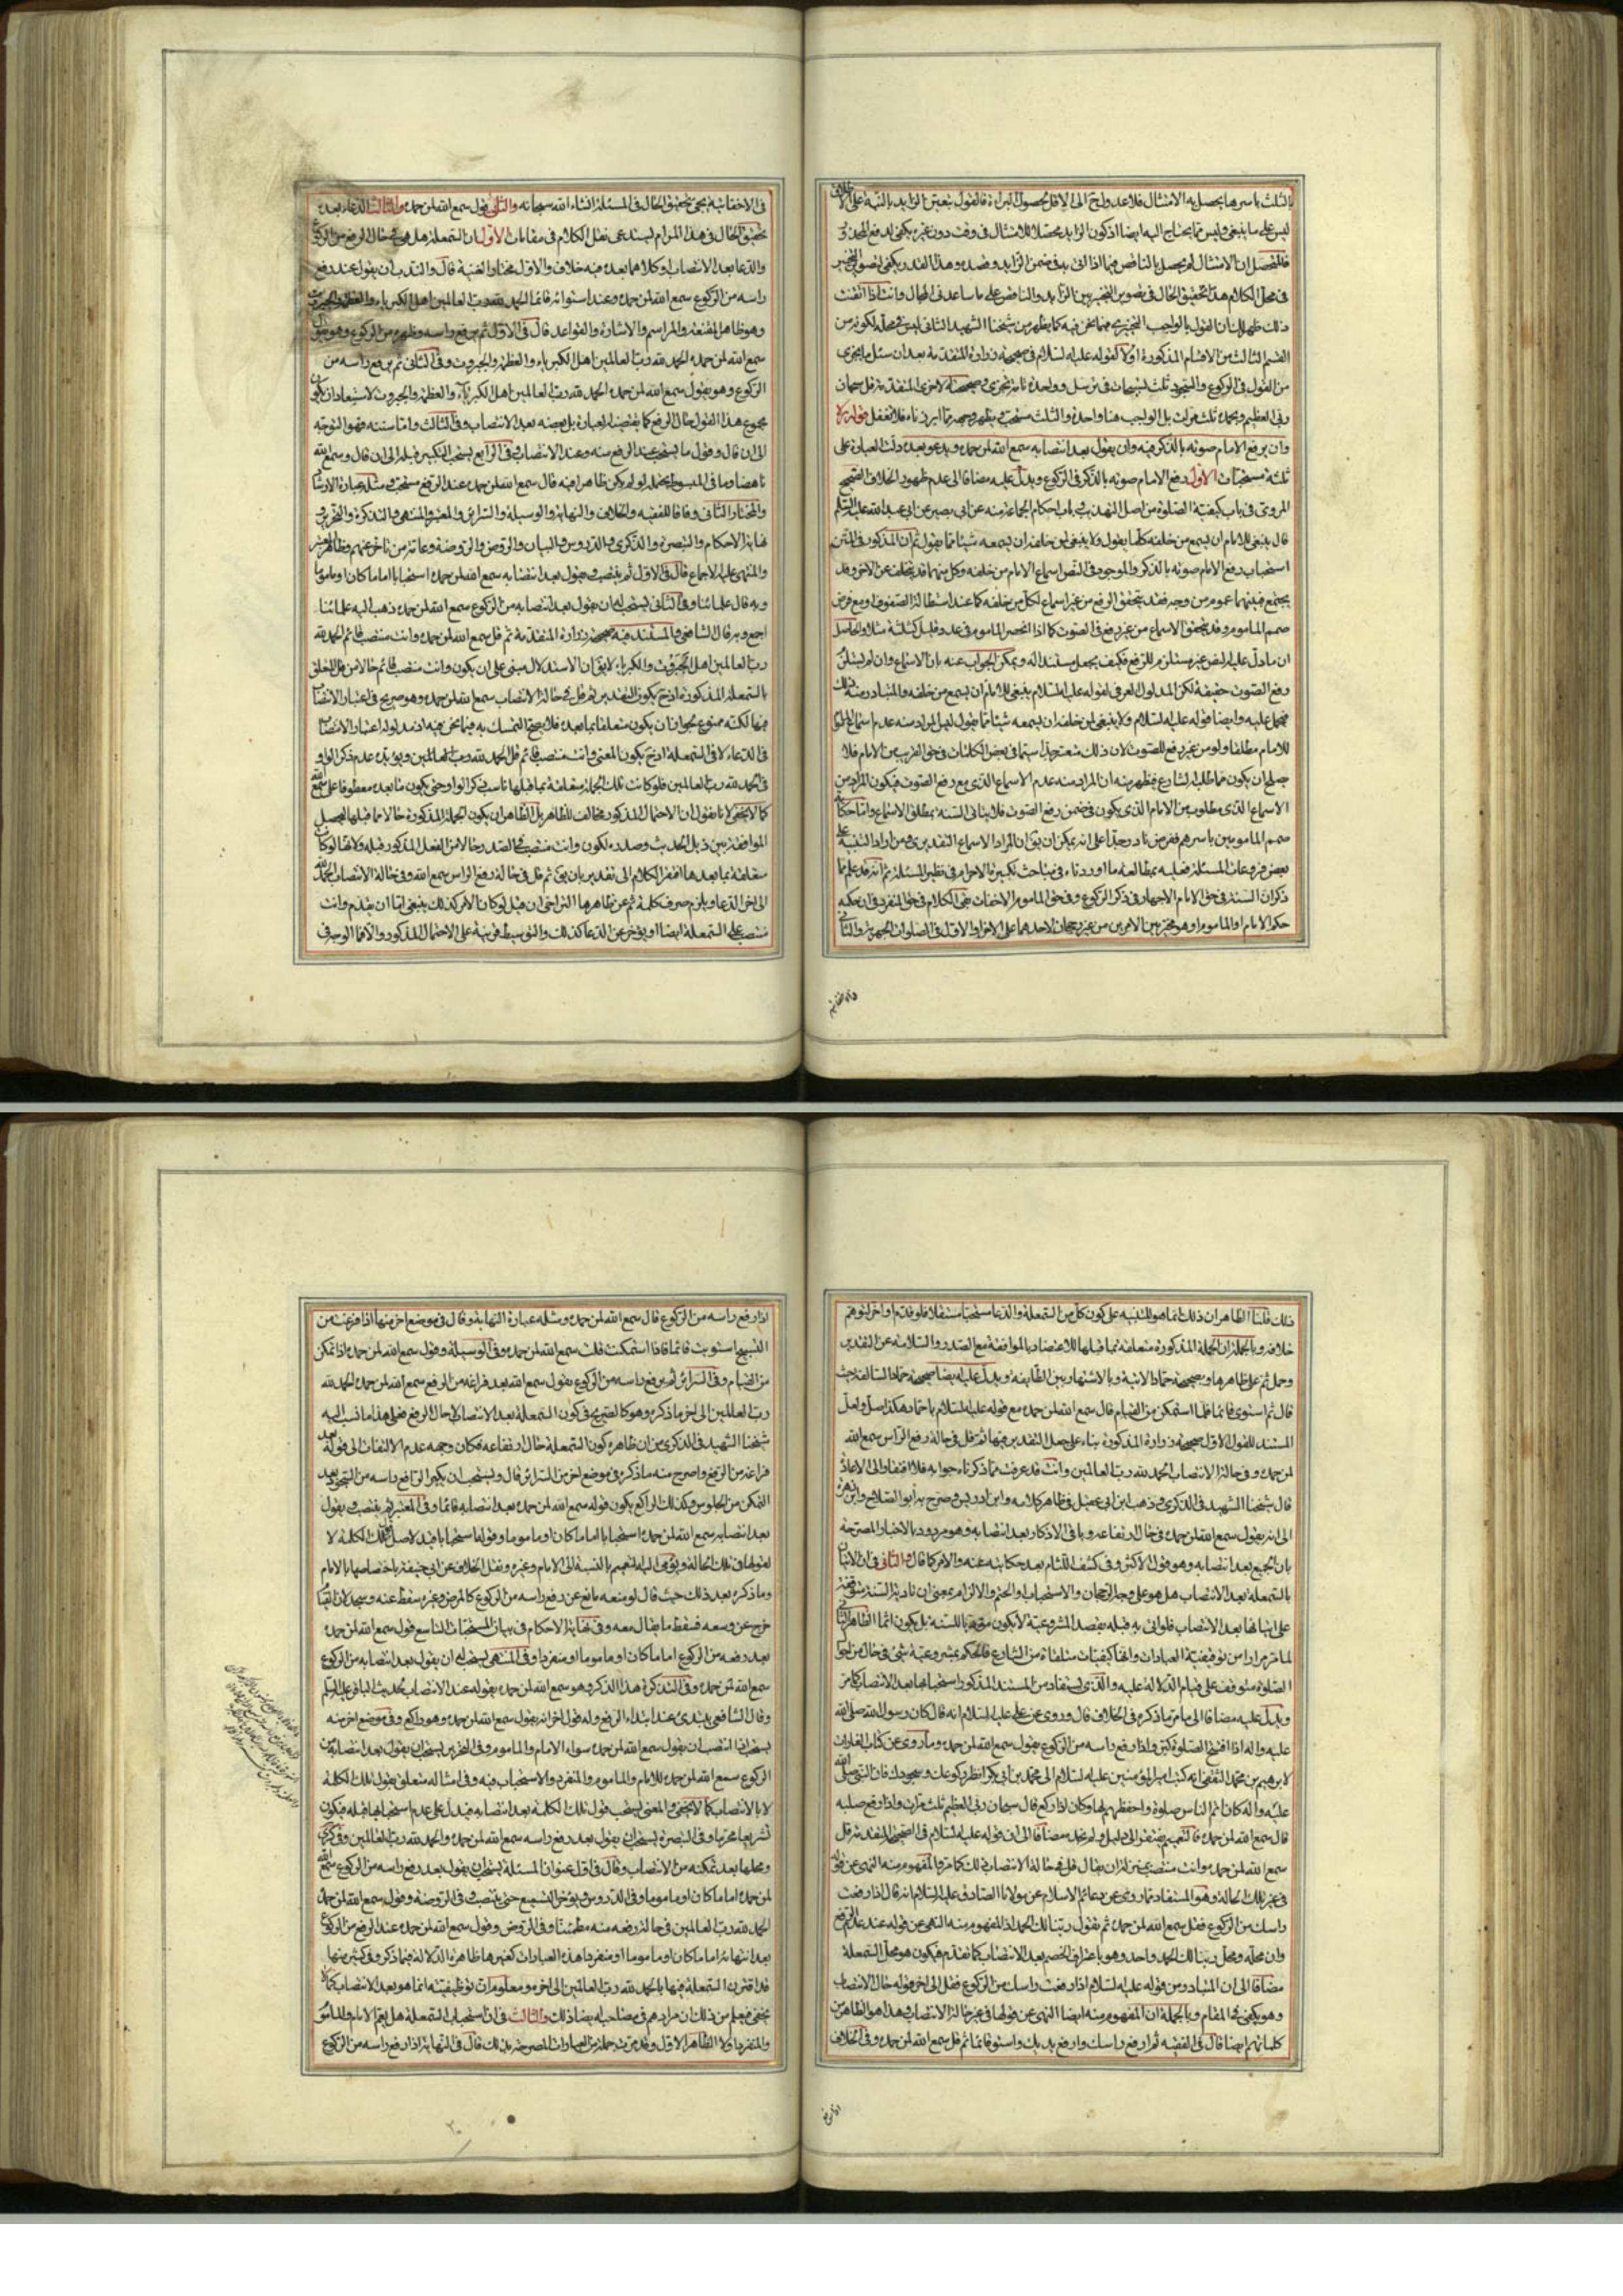 ليس على ما ينبغى وليس مما يحتاج اليه ايضا اذ كون الزايد محصلا للامتثال فى وقت دون غيره يكفى لدفع
فالمتحصل ان الامتثال لم يحصل بالناقص فيما اذا اتى به فى ضمن الزايد وضده وهذا القدر يكفى لتصوير التخيير
فى محل الكلام هذا تحقيق الحال فى تصوير التخيير بين الزايد والناقص على ما ساعدنى المجال وانت اذا اتقنت
ذلك ظهر لك ان القول بالواجب التخييرى فيما نحن فيه كما يظهر من شيخنا الشهيد الثانى ليس فى محله لكونه من
القسم الثالث من الاقسام المذكورة اولا لقوله عليه السلام فى صحيحة زرارة المتقدمة بعد ان سئل ما يجزى
من القول فى الركوع والسجود ثلث تسبيحات فى ترسل وواحدة تامة تجزى وصحيحته الاخرى المتقدمة قل سبحان
ربى العظيم وبحمده ثلث مرات بل الواجب هنا واحدة والثلث مستحب يظهر وجهه مما ابرزناه فلا تغفل قوله
وان يرفع الامام صوته بالذكر فيه وان يقول بعد انتصابه سمع الله لمن حمده ويدعو بعده دلت العبارة على
ثلثة مستحبات الاول رفع الامام صوته بالذكر فى الركوع ويدل عليه مضافا الى عدم ظهور الخلاف الصحيح
المروى فى باب كيفية الصلوة من اصل التهذيب وباب احكام الجماعة منه عن ابى بصير عن ابى عبد الله عليه السلم
قال ينبغى للامام ان يسمع من خلفه كلما يقول ولا ينبغى لمن خلفه ان يسمعه شيئا مما يقول ثم ان المذكور فى المتن
استحباب رفع الامام صوته بالذكر والموجود فى النص اسماع الامام من خلفه وكل منهما قد يتخلف عن الاخر وقد
يجتمع فبينهما عموم من وجه فقد يتحقق الرفع من غير اسماع لكل من خلفه كما عند استطالة الصفوف او مع فرض
صمم المأموم وقد يتحقق الاسماع من غير رفع فى الصوت كما اذا انحصر المأموم فى عدد قليل كثلثة مثلا والحاصل
ان ما دل عليه النص غير مستلزم للرفع فكيف يجعل مستندا له ويمكن الجواب عنه بان الاسماع وان لم يستلزم
رفع الصوت حقيقة لكن المدلول العرفى لقوله عليه السلام ينبغى للامام ان يسمع من خلفه والمتبادر منه ذلك
فيحمل عليه وايضا قوله عليه السلام ولا ينبغى لمن خلفه ان يسمعه شيئا مما يقول ليس المراد منه عدم اسماع المأموم
للامام مطلقا ولو من غير رفع للصوت لان ذلك متعسر جدا سيما فى بعض الكلمات فى حق القريب من الامام فلا
يصلح ان يكون مما طلبه الشارع فيظهر منه ان المراد منه عدم الاسماع الذى مع رفع الصوت فيكون المراد من
الاسماع الذى مطلوب من الامام الذى يكون فى ضمن رفع الصوت فلا يتاتى السنة بمطلق الاسماع واما حكاية
صمم المأمومين باسرهم ففرض نادر جدا على انه يمكن ان يق ان المراد الاسماع التقديرى ومن اراد التنبيه على
بعض فروعات المسئلة فعليه بمطالعة ما اوردناه فى مباحث تكبيرة الاحرام فى نظير المسئلة ثم انه قد علم مما
ذكر ان السنة فى حق الامام الاجهار فى ذكر الركوع وفى حق المأموم الاخفات بقى الكلام فى حق المنفرد فى ان حكمه
حكم الامام او المأموم او هو مخير بين الامرين من غير رجحان لاحدهما على الاخر او الاول فى الصلوات الجهرية والثانى
فى الاخفاتية يجئ تحقيق الحال فى المسئلة انشاء الله سبحانه والثانى قول سمع الله لمن حمده والثالث الدعاء بعده
تحقيق الحال فى هذا المرام يستدعى نقل الكلام فى مقامات الاول ان السمعلة هل هى فى حال الرفع من الركوع
والدعاء بعد الانتصاب او كلاهما بعده فيه خلاف والاول مختار الغنية قال والندب ان يقول عند رفع
راسه من الركوع سمع الله لمن حمده وعند استوائه قائما الحمد لله رب العالمين اهل الكبرياء والعظمة والجبروت
وهو ظاهر المقنعة والمراسم والاشارة والقواعد قال فى الاول ثم يرفع راسه وظهره من الركوع وهو يقول
سمع الله لمن حمده الحمد لله رب العالمين اهل الكبرياء والعظمة والجبروت وفى الثانى ثم يرفع راسه من
الركوع وهو يقول سمع الله لمن حمده الحمد لله رب العالمين اهل الكبرياء والعظمة والجبروت لاستبعاد ان يكون
مجموع هذا القول حال الرفع كما يقتضيه العبارة بل بعضه بعد الانتصاب وفى الثالث واما سننه فهو التوجه
الى ان قال وقول ما يستحب عند الرفع منه وعند الانتصاب وفى الرابع يستحب التكبير قبله الى ان قال وسمع الله
والمختار الثانى وفاقا للفقيه والخلاف والنهاية والوسيلة والسرائر والمعتبر والمنتهى والتذكرة والتحرير
ونهاية الاحكام والتبصرة والذكرى والدروس والبيان والروض والروضة وعامة من تاخر عنهم وظاهر المعتبر
والمنتهى عليه الاجماع قال فى الاول ثم ينتصب ويقول بعد انتصابه سمع الله لمن حمده استحبابا اماما كان او ماموما
وبه قال علمائنا وفى الثانى يستحب له ان يقول بعد انتصابه من الركوع سمع الله لمن حمده ذهب اليه علمائنا
اجمع وبه قال الشافعى والمستند فيه صحيحة زرارة المتقدمة ثم قل سمع الله لمن حمده وانت منتصب قائم الحمد لله
رب العالمين اهل الجبروت والكبرياء لا يق ان الاستدلال مبنى على ان يكون وانت منتصب قائم حالا من قل المتعلق
فى الدعاء لا فى السمعلة اذ ح يكون المعنى وانت منتصب قائم قل الحمد لله رب العالمين ويؤيده عدم ذكر الواو
كما لا يخفى لانا نقول ان الاحتمال المذكور مخالف للظاهر بل الظاهر ان يكون الجملة المذكورة حالا مما قبلها ليحصل
الموافقة بين ذيل الحديث وصدره لكون وانت منتصب فى الصدر حالا من الفعل المذكور قبله ولانها لو كانت
متعلقة بما بعدها افتقر الكلام الى تقدير بان يق ثم قل فى حالة رفع الراس سمع الله وفى حالة الانتصاب الحمد لله
الى اخر الدعاء ويلزم صرف كلمة ثم عن ظاهرها التراخى ان قيل لو كان الامر كذلك ينبغى اما ان يقدم وانت
منتصب على السمعلة ايضا او يؤخر عن الدعاء كذلك والتوسيط قرينة على الاحتمال المذكور والا فما الوجه فى
ذلك قلنا الظاهر ان ذلك انما هو للتنبيه على كون كل من السمعلة والدعاء مستحبا مستقلا فلو قدم او اخر لتوهم
خلافه وبالجملة ان الجملة المذكورة متعلقة بما قبلها للاعتضاد بالموافقة مع الصدر والسلامة عن التقدير
وحمل ثم على ظاهرها وبصحيحة حماد الاتية وبالاشتهار بين الطايفة ويدل عليه ايضا صحيحة حماد السالفة حيث
قال ثم استوى قائما فلما استمكن من القيام قال سمع الله لمن حمده مع قوله عليه السلام يا حماد هكذا صل ولعل
المستند للقول الاول صحيحة زرارة المذكورة بناء على جعل التقدير فيها ثم قل فى حالة رفع الراس سمع الله
لمن حمده وفى حالة الانتصاب الحمد لله رب العالمين وانت قد عرفت مما ذكرناه جوابه فلا افتقار الى الاعادة
قال شيخنا الشهيد فى الذكرى وذهب ابن ابى عقيل فى ظاهر كلامه وابن ادريس وصرح به ابو الصلاح وابن زهرة
الى انه يقول سمع الله لمن حمده فى حال ارتفاعه وباقى الاذكار بعد انتصابه وهو مردود بالاخبار المصرحة
بان الجميع بعد انتصابه وهو قول الاكثر وفى كشف اللثام بعد حكايته عنه والامر كما قال والثانى فى ان الاتيان
بالسمعلة بعد الانتصاب هل هو على وجه الرجحان والاستحباب او الحتم والالزام بمعنى ان تادية السنة متوقفة
على اتيانها بعد الانتصاب فلو اتى به قبله بقصد المشروعية لا يكون مؤديا للسنة بل يكون اثما الظاهر الثانى
لما مر مرارا من توقيفية العبادات وانها كيفيات متلقاة من الشارع فالحكم بمشروعية شئ فى حال من احوال
الصلوة متوقف على قيام الدلالة عليه والذى يستفاد من المستند المذكور استحبابها بعد الانتصاب كما مر
ويدل عليه مضافا الى ما مر ما ذكره فى الخلاف قال وروى عن على عليه السلام انه قال كان رسول الله صلى الله
عليه واله اذا افتتح الصلوة كبر واذا رفع راسه من الركوع يقول سمع الله لمن حمده وما روى عن كتاب الغارات
لابرهيم بن محمد الثقفى انه كتب امير المؤمنين عليه السلام الى محمد بن ابى بكر انظر ركوعك وسجودك فان النبى صلى الله
عليه واله كان اتم الناس صلوة واحفظهم لها وكان اذا ركع قال سبحان ربى العظيم ثلث مرات واذا رفع صلبه
قال سمع الله لمن حمده فالتعميم مفتقر الى دليل ولم نجد مضافا الى ان قوله عليه السلام فى الصحيح المتقدمة قل
سمع الله لمن حمده وانت منتصب بمنزلة ان يقال قل فى حالة الانتصاب ذلك كما مر فالمفهوم منه النهى عن قوله
فى غير تلك الحالة وهو المستفاد مما روى عن دعائم الاسلام عن مولانا الصادق عليه السلام انه قال اذا رفعت
راسك من الركوع فقل سمع الله لمن حمده ثم تقول ربنا لك الحمد اذ المفهوم منه النهى عن قوله عند عدم الرفع
وان محله ومحل ربنا لك الحمد واحد وهو باعتراف الخصم بعد الانتصاب كما تقدم فيكون هو محل السمعلة
مضافا الى ان المتبادر من قوله عليه السلام اذا رفعت راسك من الركوع فقل الى اخر قوله حال الانتصاب
وهو يكفى فى المقام وبالجملة ان المفهوم منه ايضا النهى عن قولها فى غير حالة الانتصاب وهذا هو الظاهر من
كلماتهم ايضا قال فى الفقيه ثم ارفع راسك وارفع يديك واستو قائما ثم قل سمع الله لمن حمده وفى الخلاف
اذا رفع راسه من الركوع قال سمع الله لمن حمده ومثله عبارة النهاية وقال فى موضع اخر منها اذا فرغت من
التسبيح استويت قائما فاذا استمكنت قلت سمع الله لمن حمده وفى الوسيلة وقول سمع الله لمن حمده اذا تمكن
من القيام وفى السرائر ثم يرفع راسه من الركوع يقول سمع الله بعد فراغه من الرفع سمع الله لمن حمده الحمد لله
رب العالمين الى اخر ما ذكره وهو كالصريح فى كون السمعلة بعد الانتصاب لا حال الرفع فعلى هذا ما نسب اليه
شيخنا الشهيد فى الذكرى من ان ظاهره كون السمعلة حال ارتفاعه فكان وجهه عدم الالتفات الى قوله بعد
فراغه من الرفع واصرح منه ما ذكره فى موضع اخر من السرائر قال ويستحب ان يكبر الرافع راسه من السجود بعد
التمكن من الجلوس وكذلك الراكع يكون قوله سمع الله لمن حمده بعد انتصابه قائما وفى المعتبر ثم ينتصب ويقول
بعد انتصابه سمع الله لمن حمده استحبابا اماما كان او ماموما وقولنا استحبابا قيد لاصل تلك الكلمة لا
لقولها فى تلك الحالة ويؤمى اليه التعميم بالنسبة الى الامام وغيره ونقل الخلاف عن ابى حنيفة باختصاصها بالامام
وما ذكره بعد ذلك حيث قال لو منعه مانع عن رفع راسه من الركوع كالمرض وغيره سقط عنه وسجد لان القيام
خرج عن وسعه فسقط ما يقال معه وفى نهاية الاحكام فى بيان المستحبات التاسع قول سمع الله لمن حمده
بعد رفعه من الركوع اماما كان او ماموما او منفردا وفى المنتهى يستحب له ان يقول بعد انتصابه من الركوع
سمع الله لمن حمده وفى التذكرة هذا الذكر وهو سمع الله لمن حمده يقوله عند الانتصاب لحديث الباقر عليه السلم
وقال الشافعى يبتدئ عند ابتداء الرفع وله قول اخر انه يقول سمع الله لمن حمده وهو راكع وفى موضع اخر منه
يستحب اذا انتصب ان يقول سمع الله لمن حمده سواء الامام والماموم وفى التحرير يستحب ان يقول بعد انتصابه من
الركوع سمع الله لمن حمده للامام والماموم والمنفرد والاستحباب فيه وفى امثاله متعلق بقول تلك الكلمة
لا بالانتصاب كما لا يخفى والمعنى يستحب قول تلك الكلمة بعد انتصابه فيدل على عدم استحبابها قبله فيكون
تشريعا محرما وفى التبصرة يستحب ان يقول بعد رفع راسه سمع الله لمن حمده والحمد لله رب العالمين وفى الذكرى
ومحلها بعد تمكنه من الانتصاب وقال فى اول عنوان المسئلة يستحب ان يقول بعد رفع راسه من الركوع سمع الله
لمن حمده اماما كان او ماموما وفى الدروس ويؤخر التسميع حتى ينتصب وفى الروضة وقول سمع الله لمن حمده
الحمد لله رب العالمين فى حالة رفعه منه مطمئنا وفى الروض وقول سمع الله لمن حمده عند الرفع من الركوع
بعد انتهائه اماما كان او ماموما او منفردا هذه العبارات كغيرها ظاهرة الدلالة فيما ذكر وفى كثير منها
قد اقترن السمعلة فيها بالحمد لله رب العالمين الى اخره ومعلوم ان توظيفيته انما هو بعد الانتصاب كما لا
يخفى فيعلم من ذلك ان مرادهم فى مصاحبه ايضا ذلك والثالث فى ان استحباب السمعلة هل يعم الامام والماموم
والمنفرد ام لا الظاهر الاول وقد مرت جملة من العبارات المصرحة بذلك قال فى النهاية اذا رفع راسه من الركوع